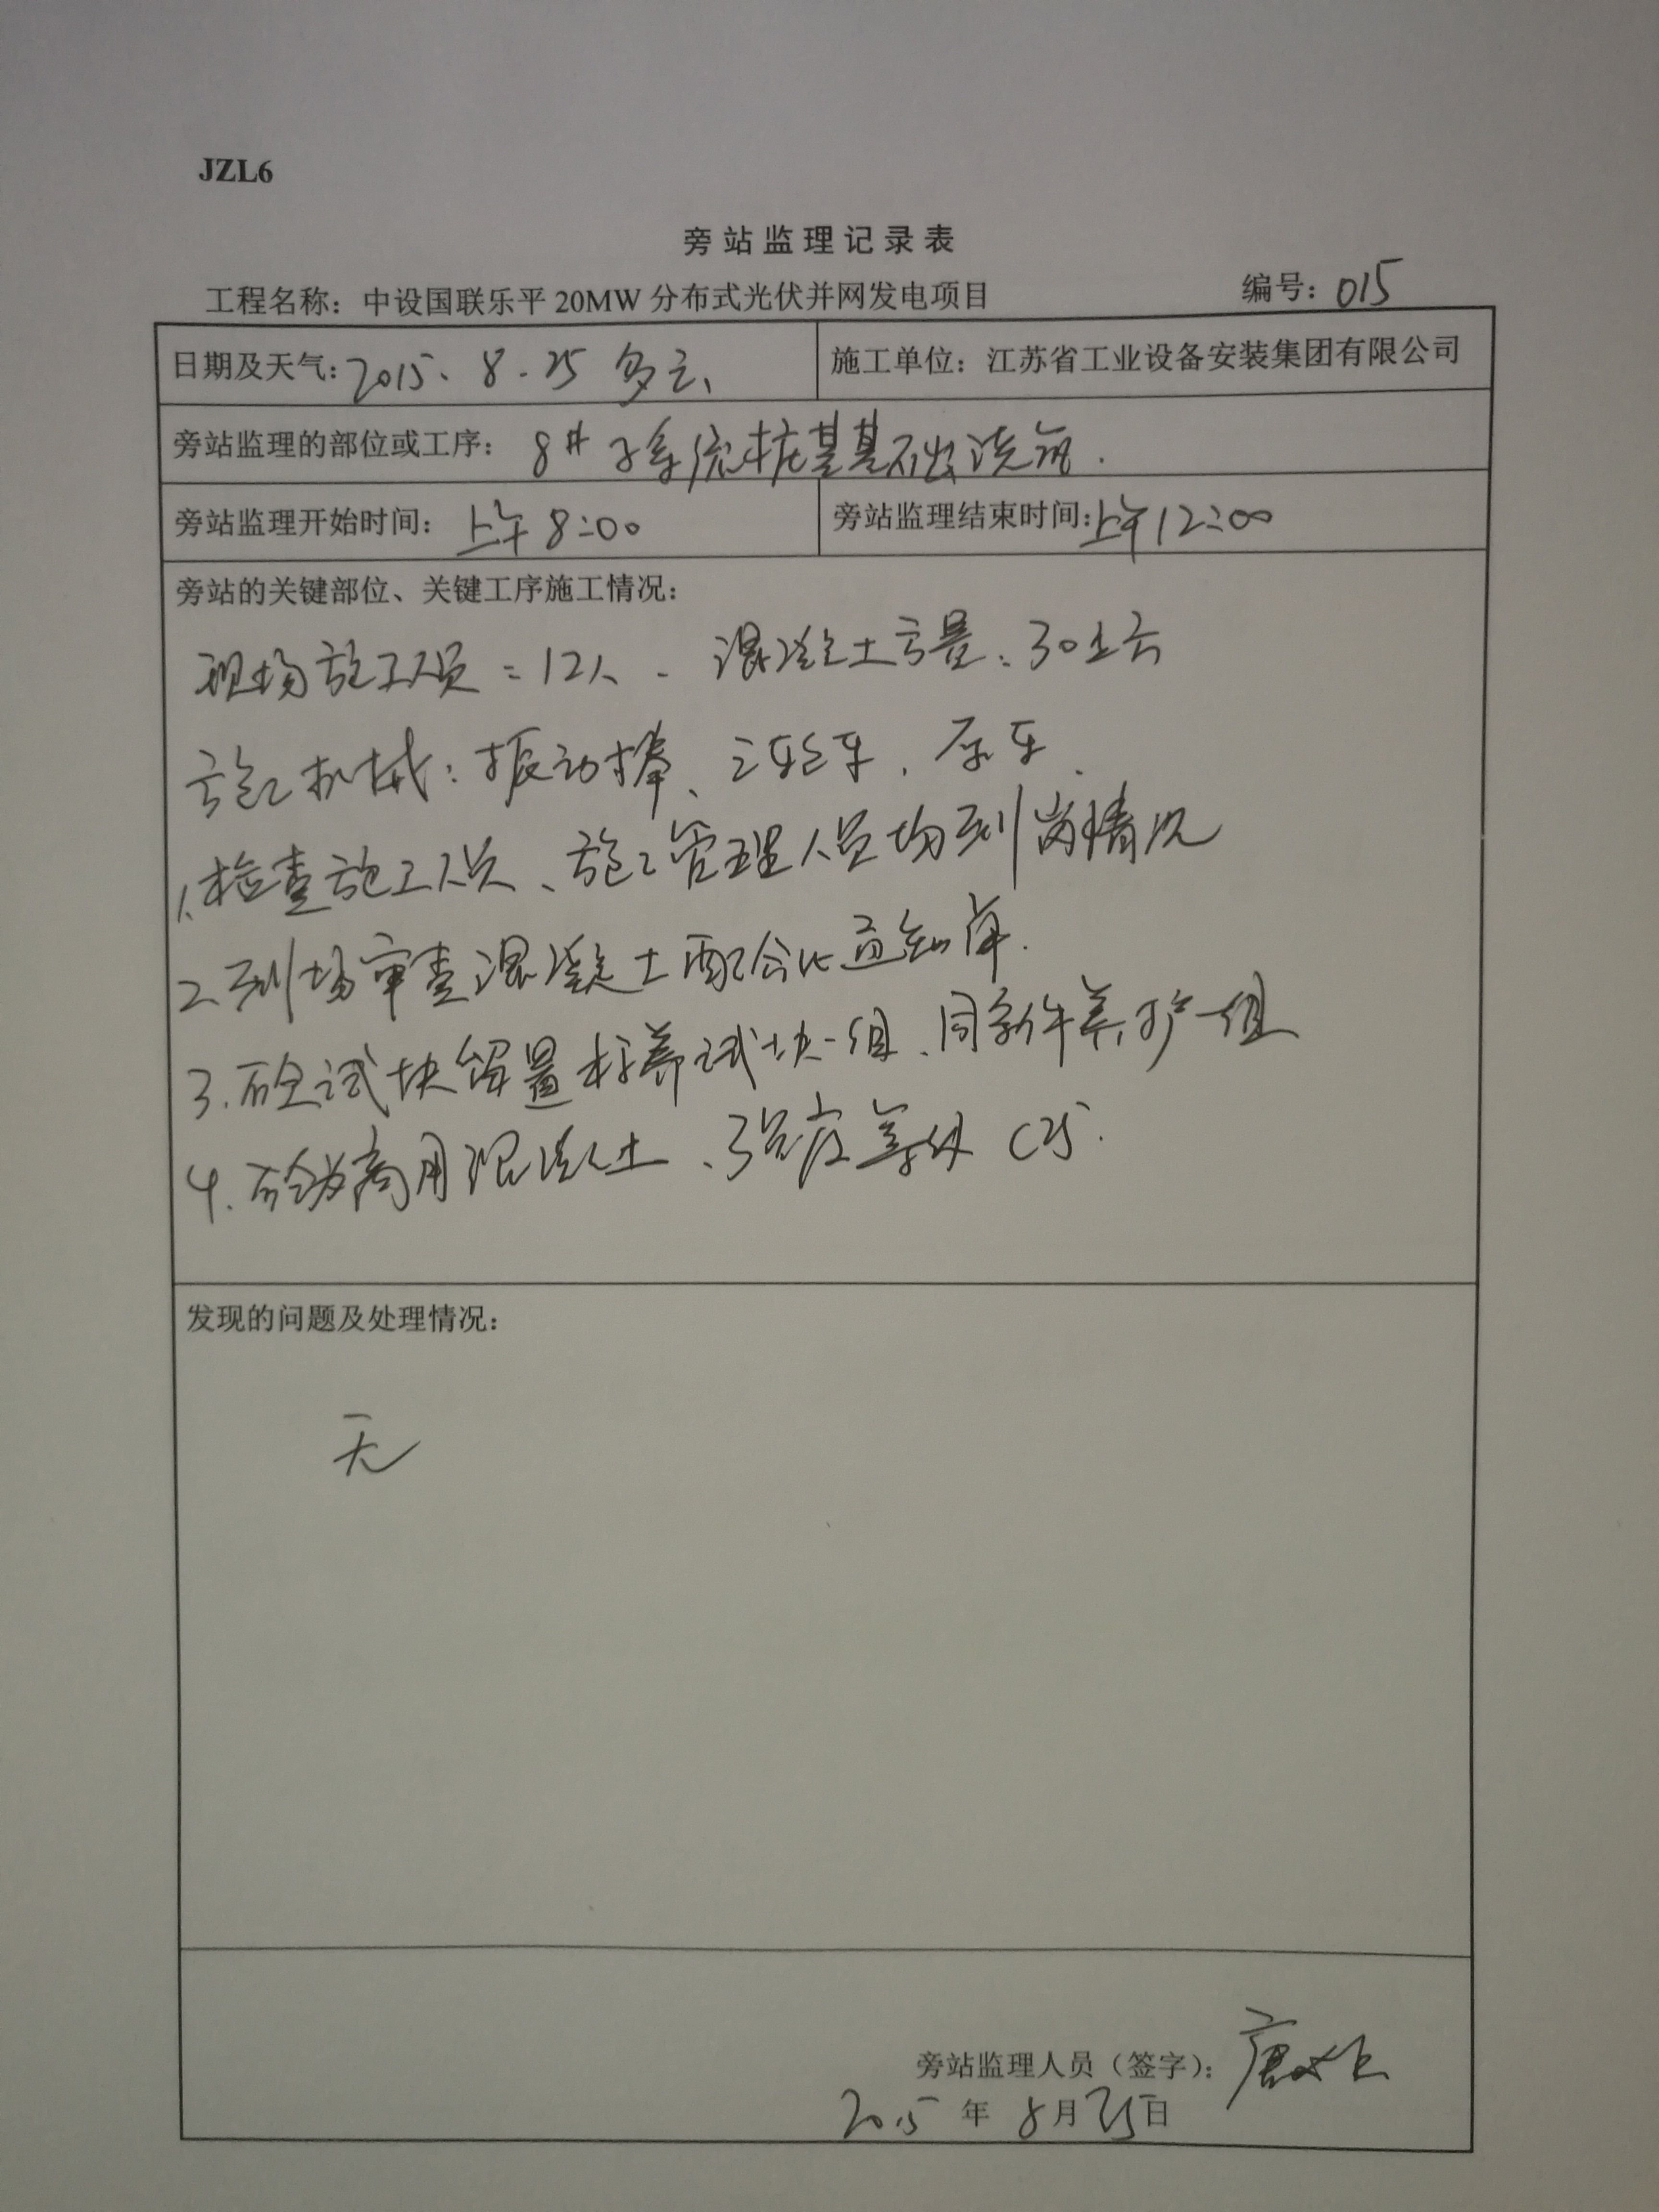 JZL6
旁站监理记录表
工程名称：中设国联乐平 20MW 分布式光伏并网发电项目 编号：015
日期及天气：2015、8.25 多云 施工单位：江苏省工业设备安装集团有限公司
旁站监理的部位或工序：8# 子系统桩基基础浇筑.
旁站监理开始时间：上午 8:00 旁站监理结束时间：上午12:00
旁站的关键部位、关键工序施工情况：
现场施工人员：12人、混凝土方量：30立方
施工机械：振动棒、泵车.
1.检查施工人员、施工管理人员均到岗情况
2.到场审查混凝土配合比通知单.
3.砼试块留置标养试块一组、同条件养护一组
4.砼为商用混凝土、强度等级 C25.
发现的问题及处理情况：
无
旁站监理人员（签字）：唐
2015 年 8月25日